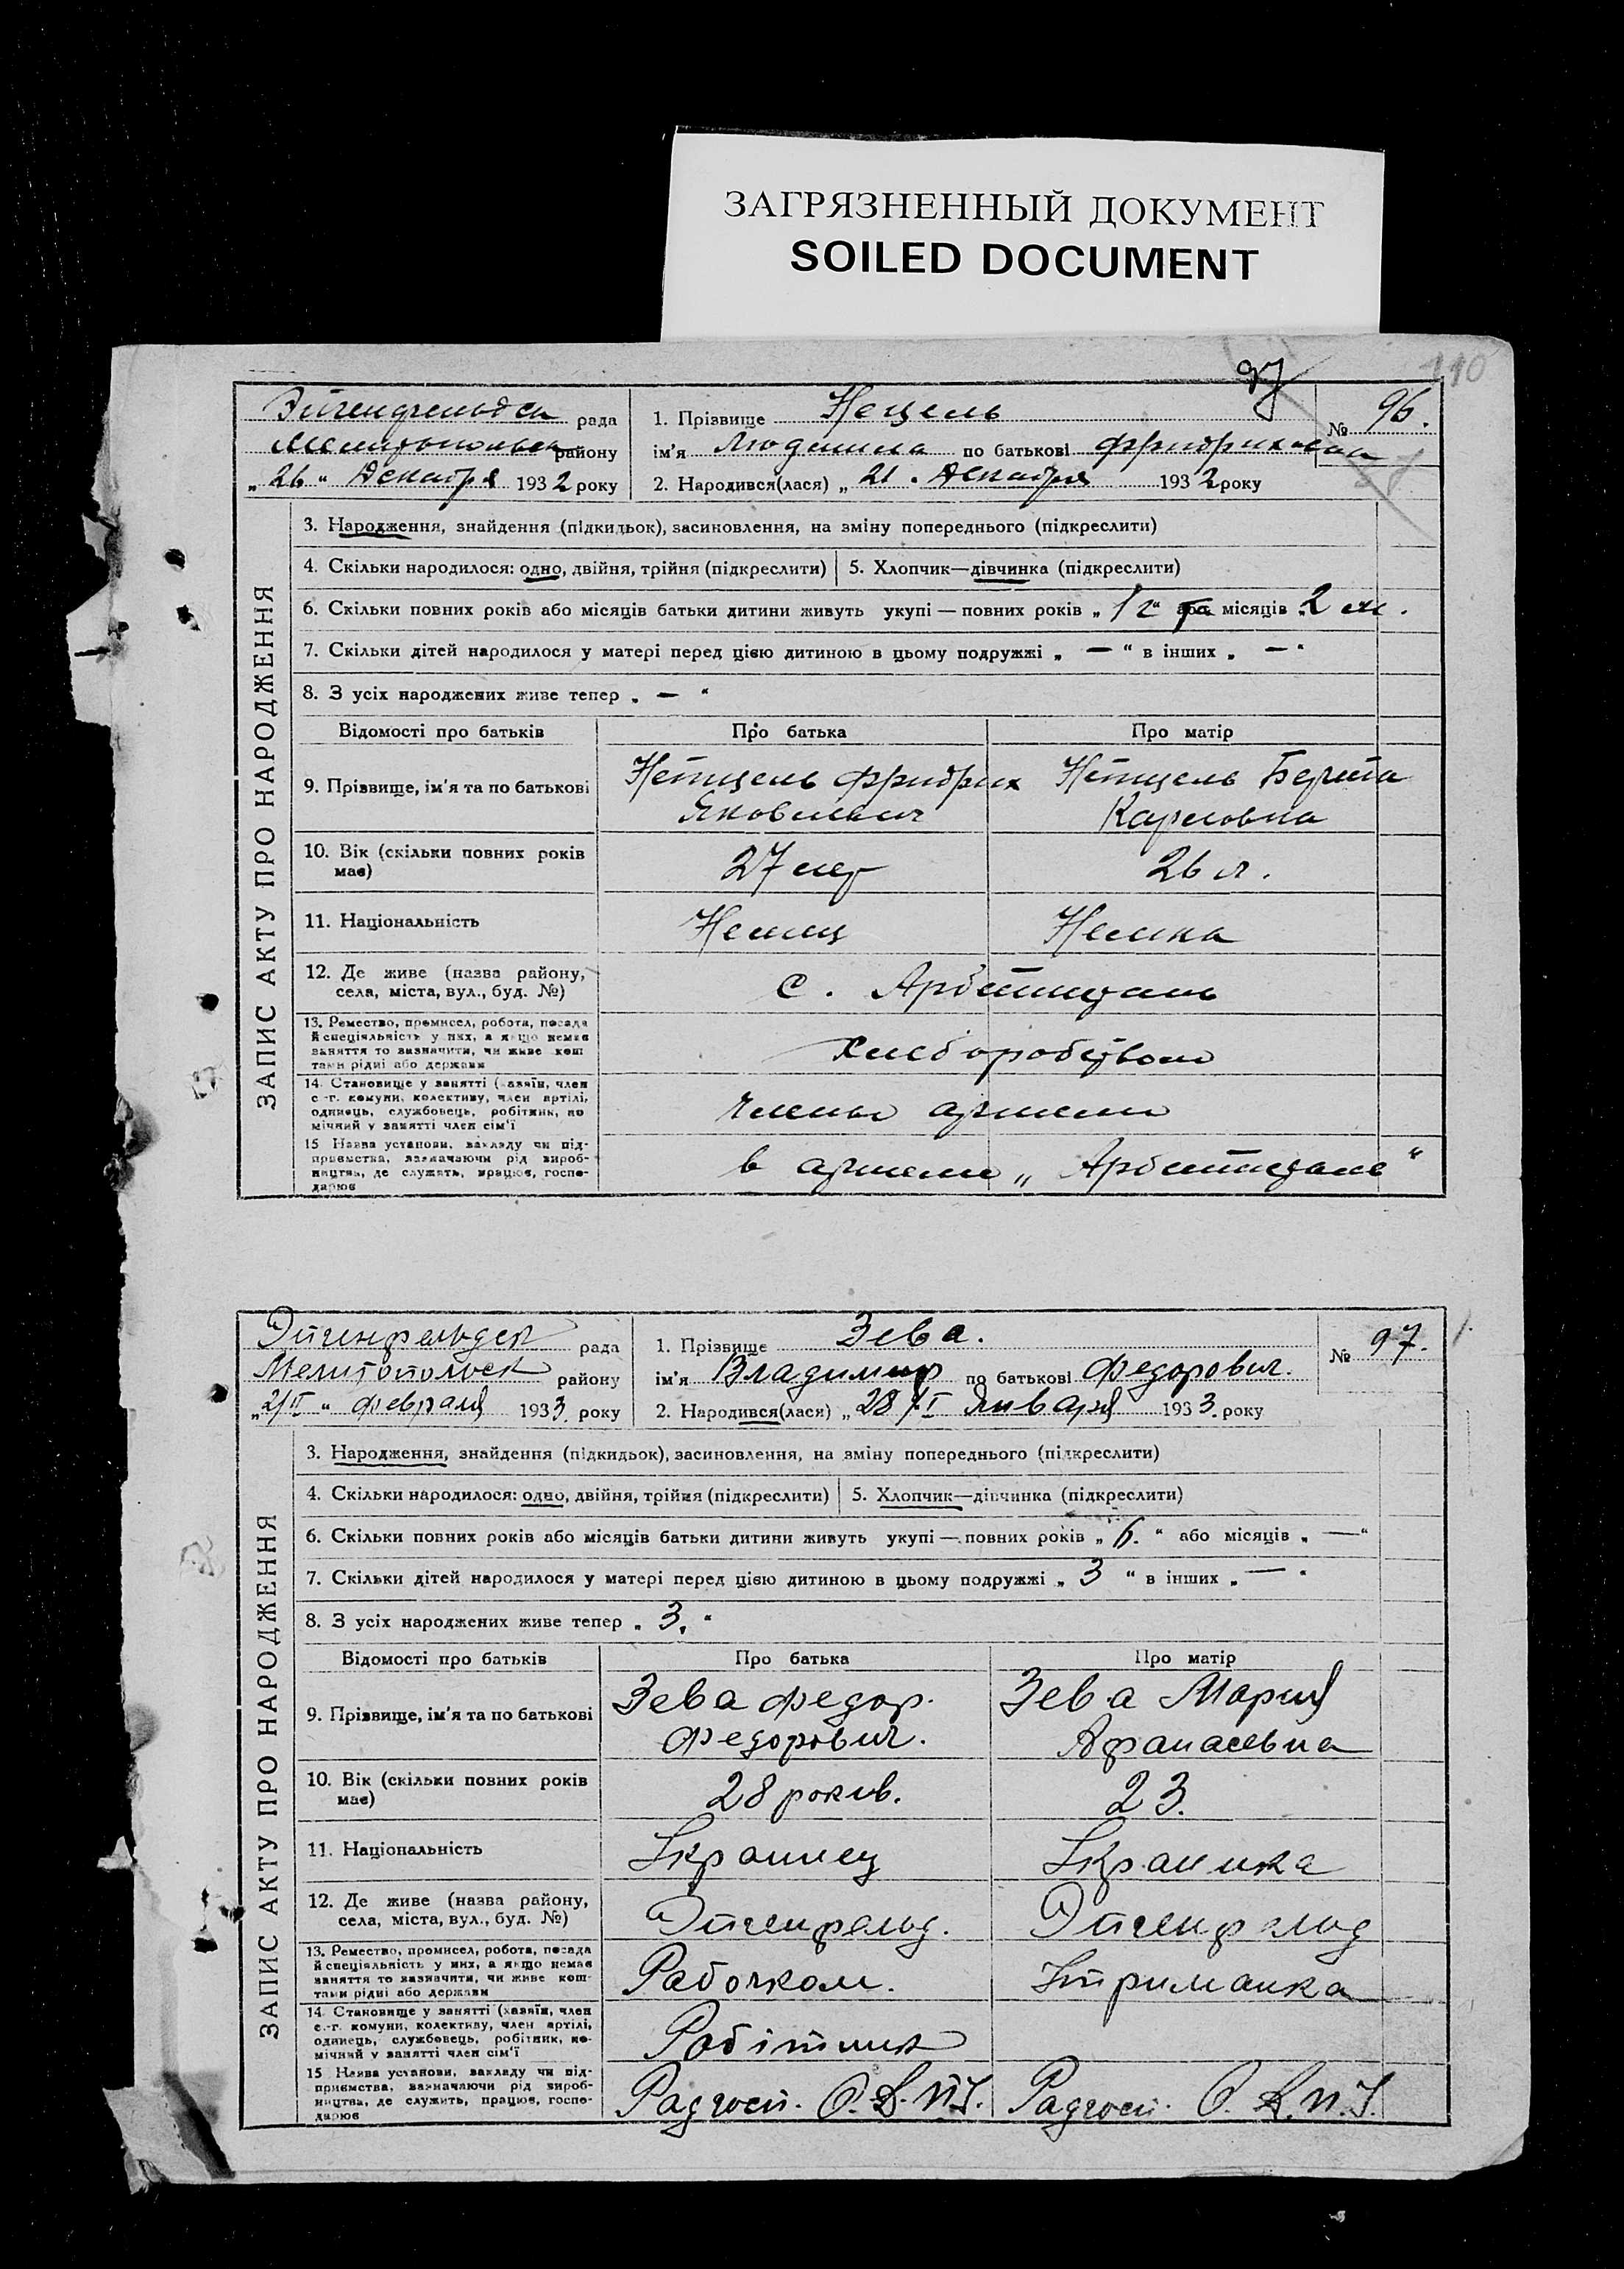 ЗАГРЯЗНЕННЫЙ ДОКУМЕНТ
SOILED DOCUMENT
97
110
Эйгенфельдск рада
Мелитопольск району
„26“ Декабря 1932 року
1. Прізвище Нецель
№ 96.
ім'я Людмила по батькові Фридриховна
2. Народився(лася) „21. Декабря 1932 року
ЗАПИС АКТУ ПРО НАРОДЖЕННЯ
3. Народження, знайдення (підкидьок), засиновлення, на зміну попереднього (підкреслити)
4. Скільки народилося: одно, двійня, трійня (підкреслити)
5. Хлопчик—дівчинка (підкреслити)
6. Скільки повних років або місяців батьки дитини живуть укупі — повних років „1 г“ або місяців „2 м.
7. Скільки дітей народилося у матері перед цією дитиною в цьому подружжі „ — “ в інших „ — “
8. З усіх народжених живе тепер „ — “
Відомості про батьків
Про батька
Про матір
9. Прізвище, ім'я та по батькові
Нетцель Фридрих
Яковлевич
Нетцель Берта
Карловна
10. Вік (скільки повних років має)
27 лет
26 л.
11. Національність
Немец
Немка
12. Де живе (назва району,
села, міста, вул., буд. №)
с.
13. Ремество, промисел, робота, посада
й спеціяльність у них, а якщо немає
заняття то зазначити, чи живе кош-
тами рідні або держави
хлеборобством
14. Становище у занятті (хазяїн, член
с.-г. комуни, колективу, член артілі,
одинець, службовець, робітник, по-
мічний у занятті член сім'ї
члены артели
15 Назва установи, закладу чи під-
приємства, зазначаючи рід вироб-
ництва, де служить, працює, госпо-
дарює
в артели
Эйгенфельдск рада
Мелитопольск району
„2/II“ Февраля 1933. року
1. Прізвище Зева.
№ 97.
ім'я Владимир по батькові Федорович.
2. Народився(лася) „28/I Января 1933. року
ЗАПИС АКТУ ПРО НАРОДЖЕННЯ
3. Народження, знайдення (підкидьок), засиновлення, на зміну попереднього (підкреслити)
4. Скільки народилося: одно, двійня, трійня (підкреслити)
5. Хлопчик—дівчинка (підкреслити)
6. Скільки повних років або місяців батьки дитини живуть укупі — повних років „6.“ або місяців „ — “
7. Скільки дітей народилося у матері перед цією дитиною в цьому подружжі „ 3 “ в інших „ — “
8. З усіх народжених живе тепер „ 3. “
Відомості про батьків
Про батька
Про матір
9. Прізвище, ім'я та по батькові
Зева Федор.
Федорович.
Зева Мария
Афанасевна
10. Вік (скільки повних років має)
28 років.
23.
11. Національність
Украинец
Украинка
12. Де живе (назва району,
села, міста, вул., буд. №)
Эйгенфельд.
Эйгенфельд
13. Ремество, промисел, робота, посада
й спеціяльність у них, а якщо немає
заняття то зазначити, чи живе кош-
тами рідні або держави
Рабочком.
Утриманка
14. Становище у занятті (хазяїн, член
с.-г. комуни, колективу, член артілі,
одинець, службовець, робітник, по-
мічний у занятті член сім'ї
Робітник
15 Назва установи, закладу чи під-
приємства, зазначаючи рід вироб-
ництва, де служить, працює, госпо-
дарює
Радгосп.
Радгосп.